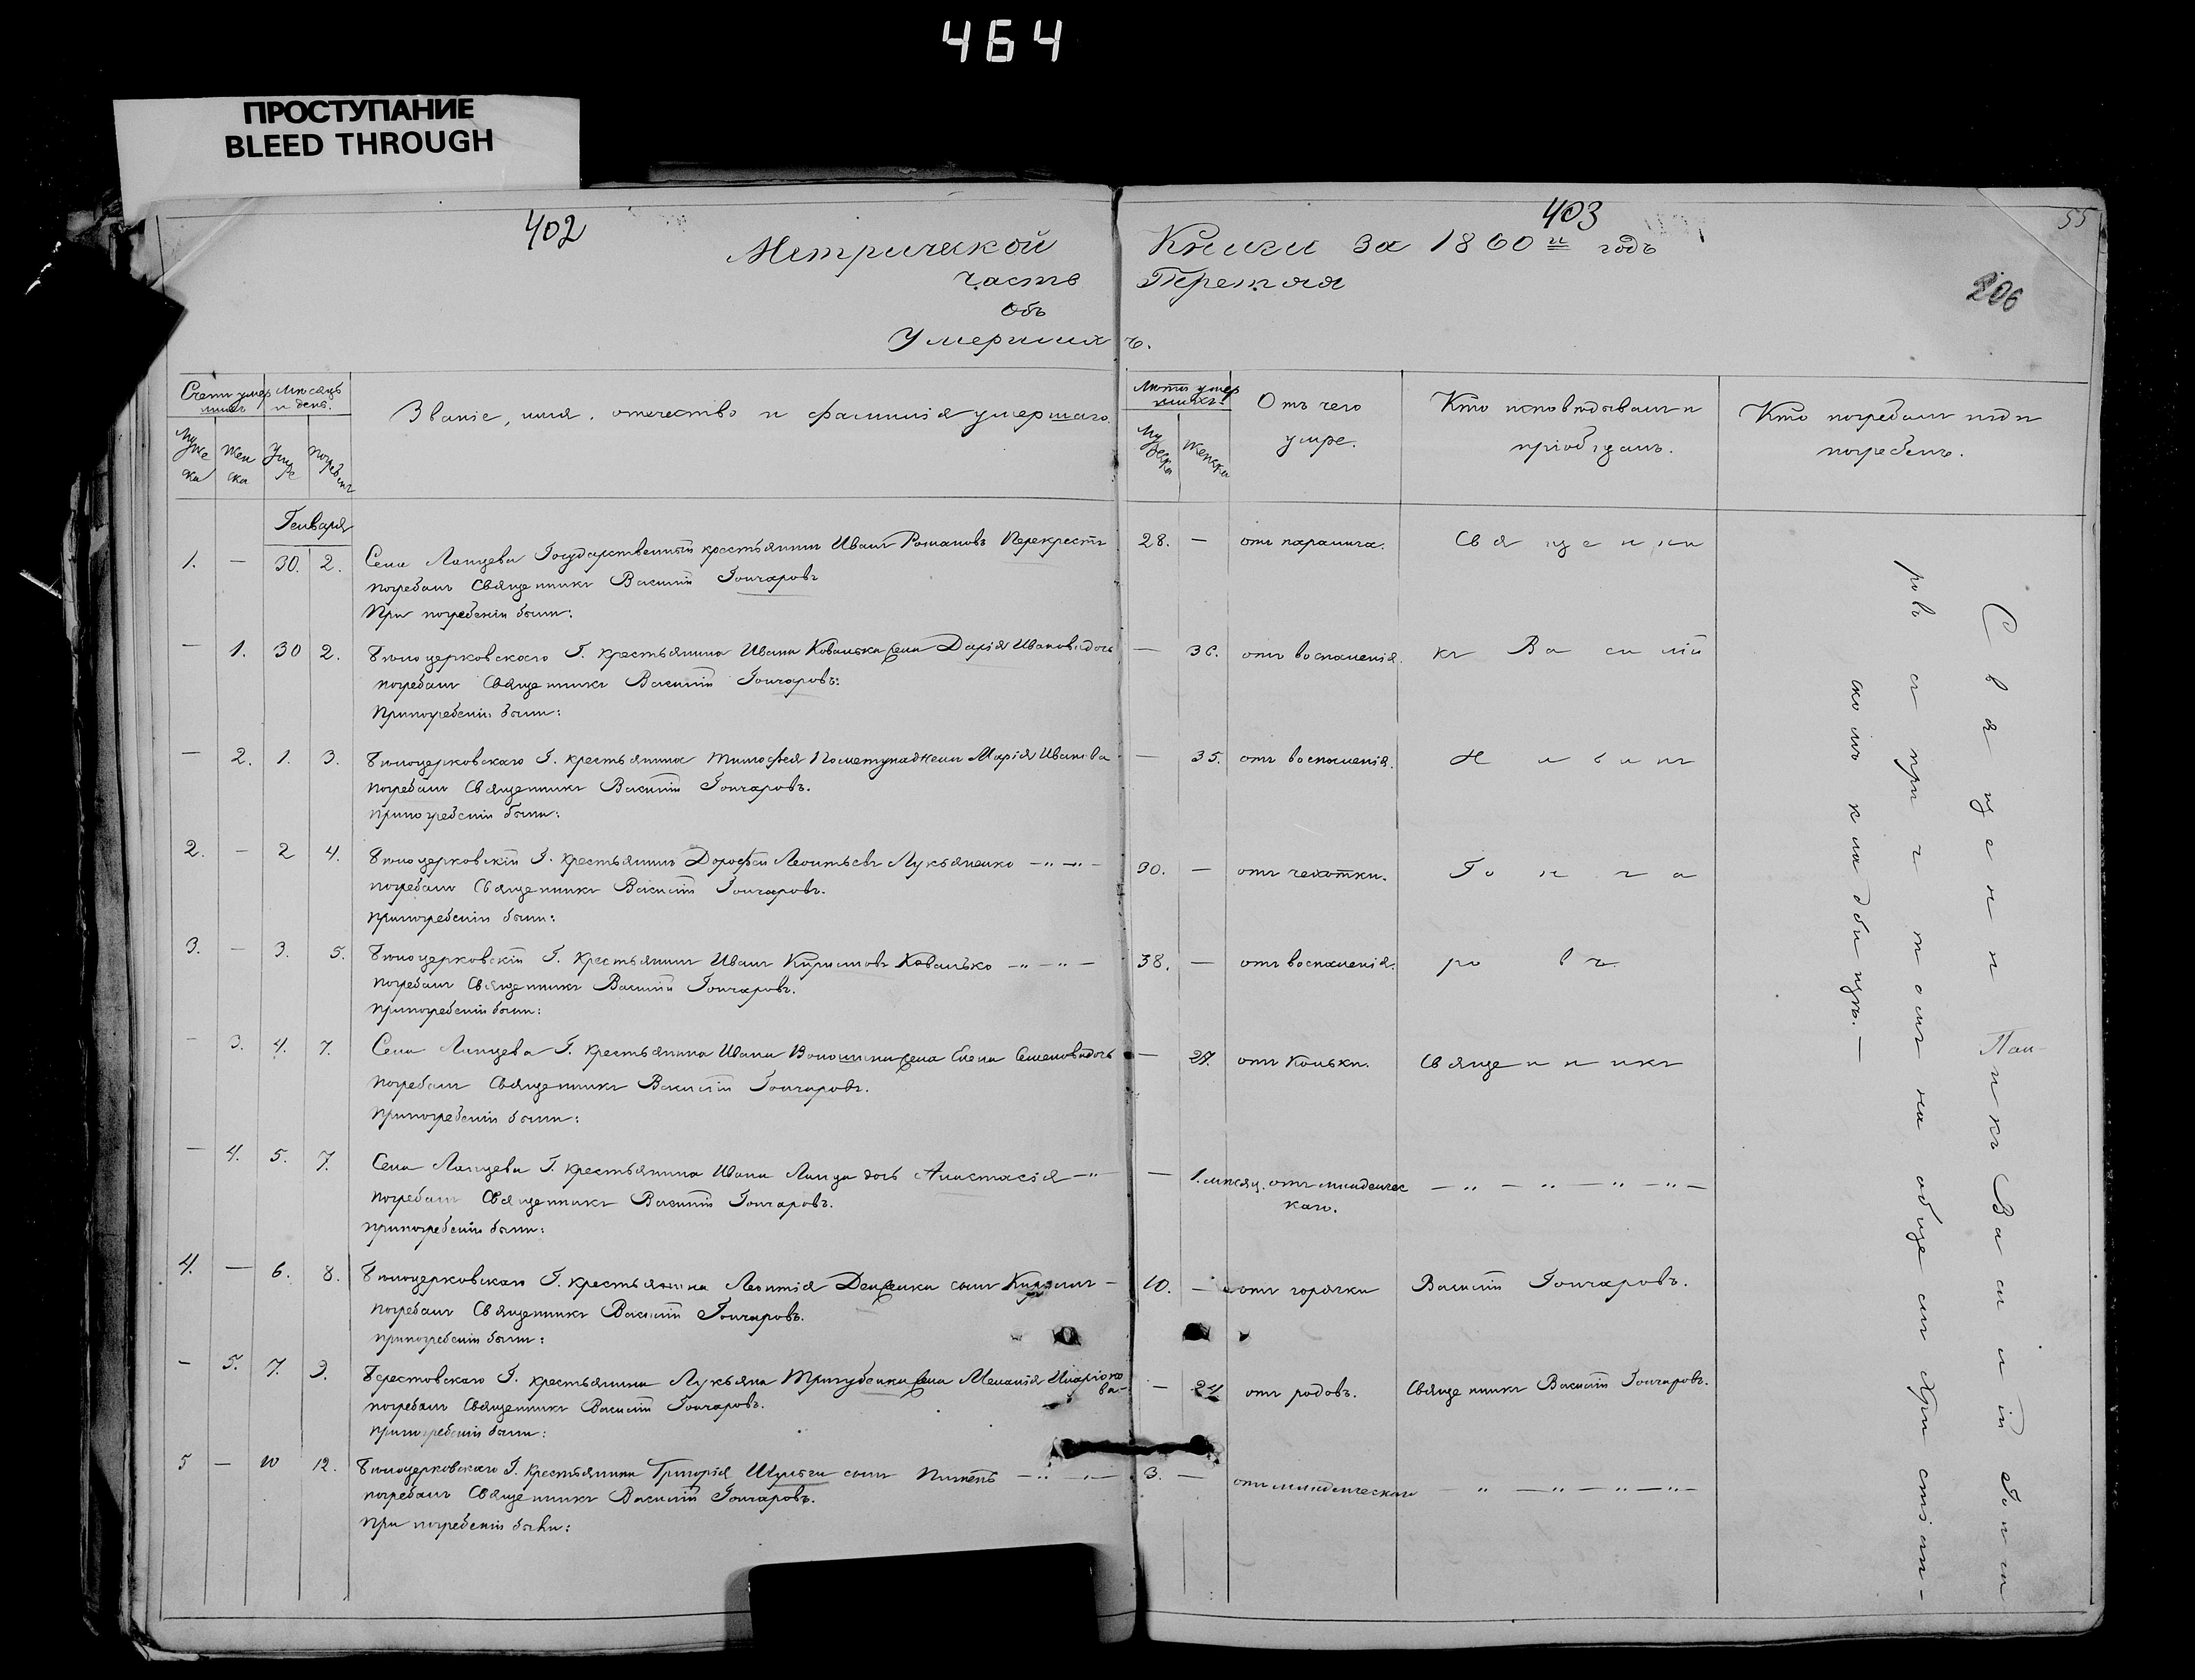 464
ПРОСТУПАНИЕ
BLEED THROUGH
402
403
55
206
Метрической Книги за 1860й годъ
часть Третия
Объ
Умершихъ.
Счетъ умершихъ
Мѣсяцъ и день.
Званіе, имя, отечество и фамилія умершаго.
Лѣта умершихъ
Отъ чего умре.
Кто исповѣдывалъ и пріобщалъ.
Кто погребалъ и гдѣ погребенъ.
Мужеска
Женска
Умре
Погребенъ
Мужеска
Женска
Генваря
1. — 30. 2. Села Липцева Государственный крестьянинъ Иванъ Романовъ Перекрестъ 28. — отъ паралича.
погребалъ Священникъ Василій Гончаровъ
При погребеніи были:
— 1. 30 2. Г. крестьянина Ивана Ковалька жена Дарія Иванова дочь — 36. отъ воспаленія.
погребалъ Священникъ Василій Гончаровъ.
При погребеніи были:
— 2. 1. 3. Г. крестьянина Тимофея жена Марія Иванова — 35. отъ воспаленія.
погребалъ Священникъ Василій Гончаровъ.
при погребеніи были:
2. — 2 4. Г. крестьянинъ Дорофей Леонтьевъ Лукьяненко — " — " — 30. — отъ чехотки.
погребалъ Священникъ Василій Гончаровъ.
при погребеніи были:
3. — 3. 5. Г. крестьянинъ Иванъ Кириловъ Ковалько — " — " — 38. — отъ воспаленія.
погребалъ Священникъ Василій Гончаровъ.
при погребеніи были:
— 3. 4. 7. Села Липцева Г. крестьянина Ивана жена Елена Семенова дочь — 27. отъ Кольки. Священникъ
погребалъ Священникъ Василій Гончаровъ.
при погребеніи были:
— 4. 5. 7. Села Липцева Г. крестьянина Ивана дочь Анастасія — " — — 1. мѣсяц. отъ младенческаго. — " — " — " — " —
погребалъ Священникъ Василій Гончаровъ.
при погребеніи были:
4. — 6. 8. Г. крестьянина Леонтія сынъ — 10. — отъ горячки Василій Гончаровъ.
погребалъ Священникъ Василій Гончаровъ.
при погребеніи были:
— 5. 7. 9. Берестовскаго Г. крестьянина Лукьяна Тригубенки жена Меланія Иларіонова — — 24 отъ родовъ. Священникъ Василій Гончаровъ.
погребалъ Священникъ Василій Гончаровъ.
при погребеніи были:
5 — 10 12. Г. крестьянина Григорія Шульги сынъ — " — " — 3. — отъ младенческаго — " — " — " — " —
погребалъ Священникъ Василій Гончаровъ.
при погребеніи были:
Священникъ Василій
Гончаровъ
Священникъ Василій Гонча
ровъ съ причтомъ на общемъ Христіан-
скомъ кладбищѣ. —